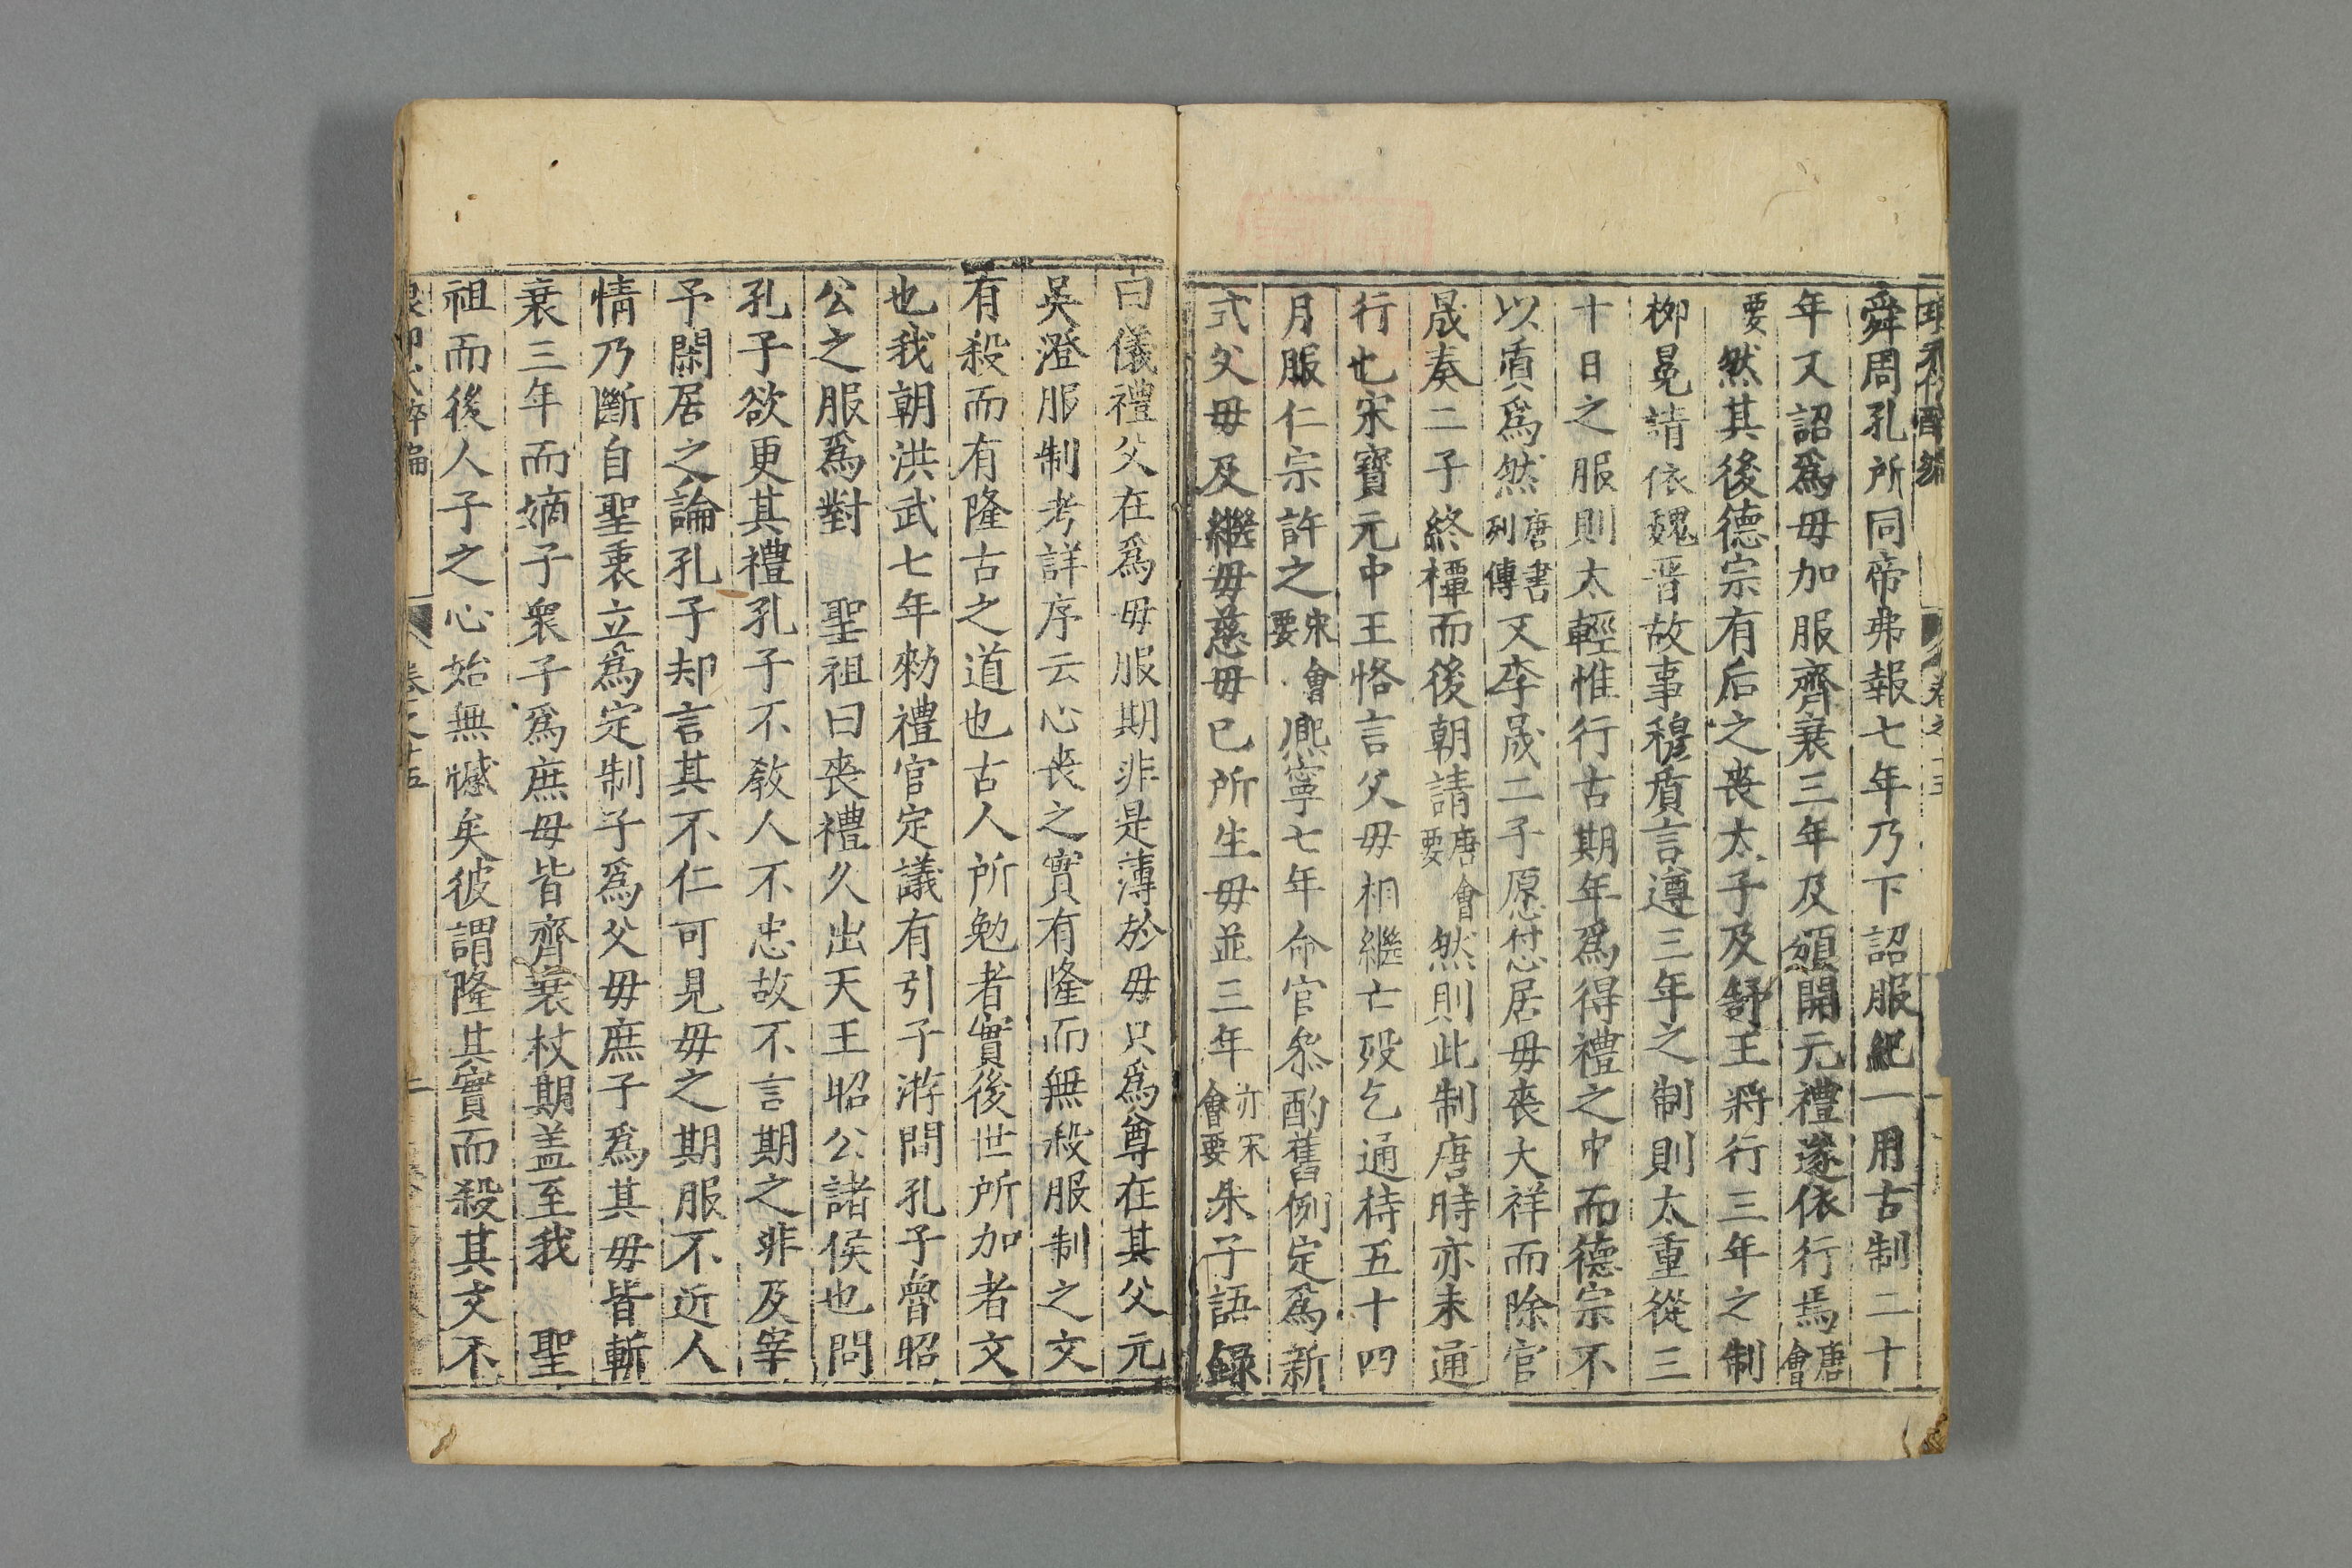 舜周孔所同帝弗報七年乃下詔服紀一用古制二十
年又詔爲毋加服齊衰三年及頒開元禮遂依行焉唐會
要然其後德宗有后之丧太子及舒王將行三年之制
栁冕請依魏晋故事穆質言遵三年之制則太重從三
十日之服則太輕惟行古期年爲得禮之中而德宗不
以質爲然唐書列傳又李晟二子愿愬居毋丧大祥而除官
晟奏二子終禫而後朝請唐會要然則此制唐時亦未通
行也宋寳元中王恪言父毋相繼亡殁乞通持五十四
月服仁宗許之宋會要熈寧七年命官叅酌舊例定爲新
式父毋及繼毋慈毋已所生毋並三年亦宋會要朱子語録
曰儀禮父在爲毋服期非是薄於毋只爲尊在其父元
吳澄服制考詳序云心丧之實有隆而無殺服制之文
有殺而有隆古之道也古人所勉者實後世所加者文
也我朝洪武七年勑禮官定議有引子游問孔子魯昭
公之服爲對　聖祖曰丧禮久出天王昭公諸侯也問
孔子欲更其禮孔子不敎人不忠故不言期之非及宰
予閑居之論孔子却言其不仁可見毋之期服不近人
情乃斷自聖衷立爲定制子爲父毋庶子爲其毋皆斬
衰三年而嫡子衆子爲庶毋皆齊衰杖期盖至我　聖
祖而後人子之心始無憾矣彼謂隆其實而殺其文不
卷之十五